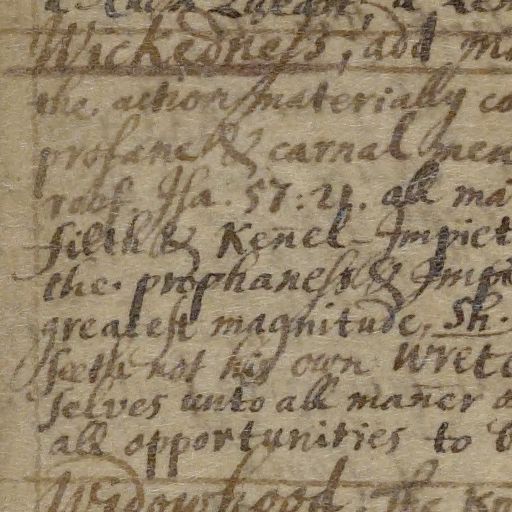 Wickedness, add
the. action materially
profane & carnal men
roof. Isa. 57:21. all
filth & Kenel-Impiet
the. prophaness &
greatest magnitude. Sh.
seeth not his own Wretc
selves unto all maner
all opportunities to
Widowhood. The